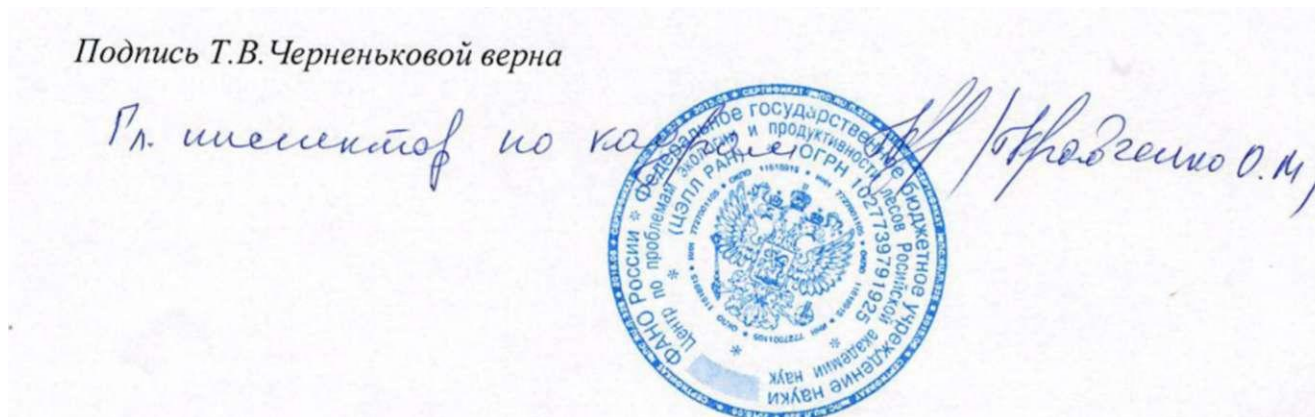 Подпись Т.В.Черненьковой верна
Гл. инспектор по кадрам /Кравченко О.М/
ФАНО России * Федеральное государственное бюджетное учреждение науки
Центр по проблемам экологии и продуктивности лесов Российской академии наук *
(ЦЭПЛ РАН) * ОГРН 1027739791925 *